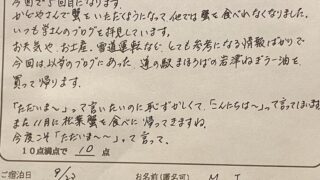 今回で5回目になります。
からやさんで蟹をいただくようになって他では蟹を食べれなくなりました。
いつも字さんのブログを拝見しています。
お天気やお土産、雪道運転など、とても参考になる情報ばかりで
今回は以前のブログにあった、道の駅まほろばの岩津ねぎラー油を
買って帰ります。
「ただいま〜」って言いたいのに恥ずかしくて、「こんにちは〜」って言ってしまいます
また11月に松葉蟹を食べに帰ってきますね。
今度こそ「ただいま〜〜」って言って。
10点満点で 10 点
ご宿泊日 9/23 お名前(匿名可) M I